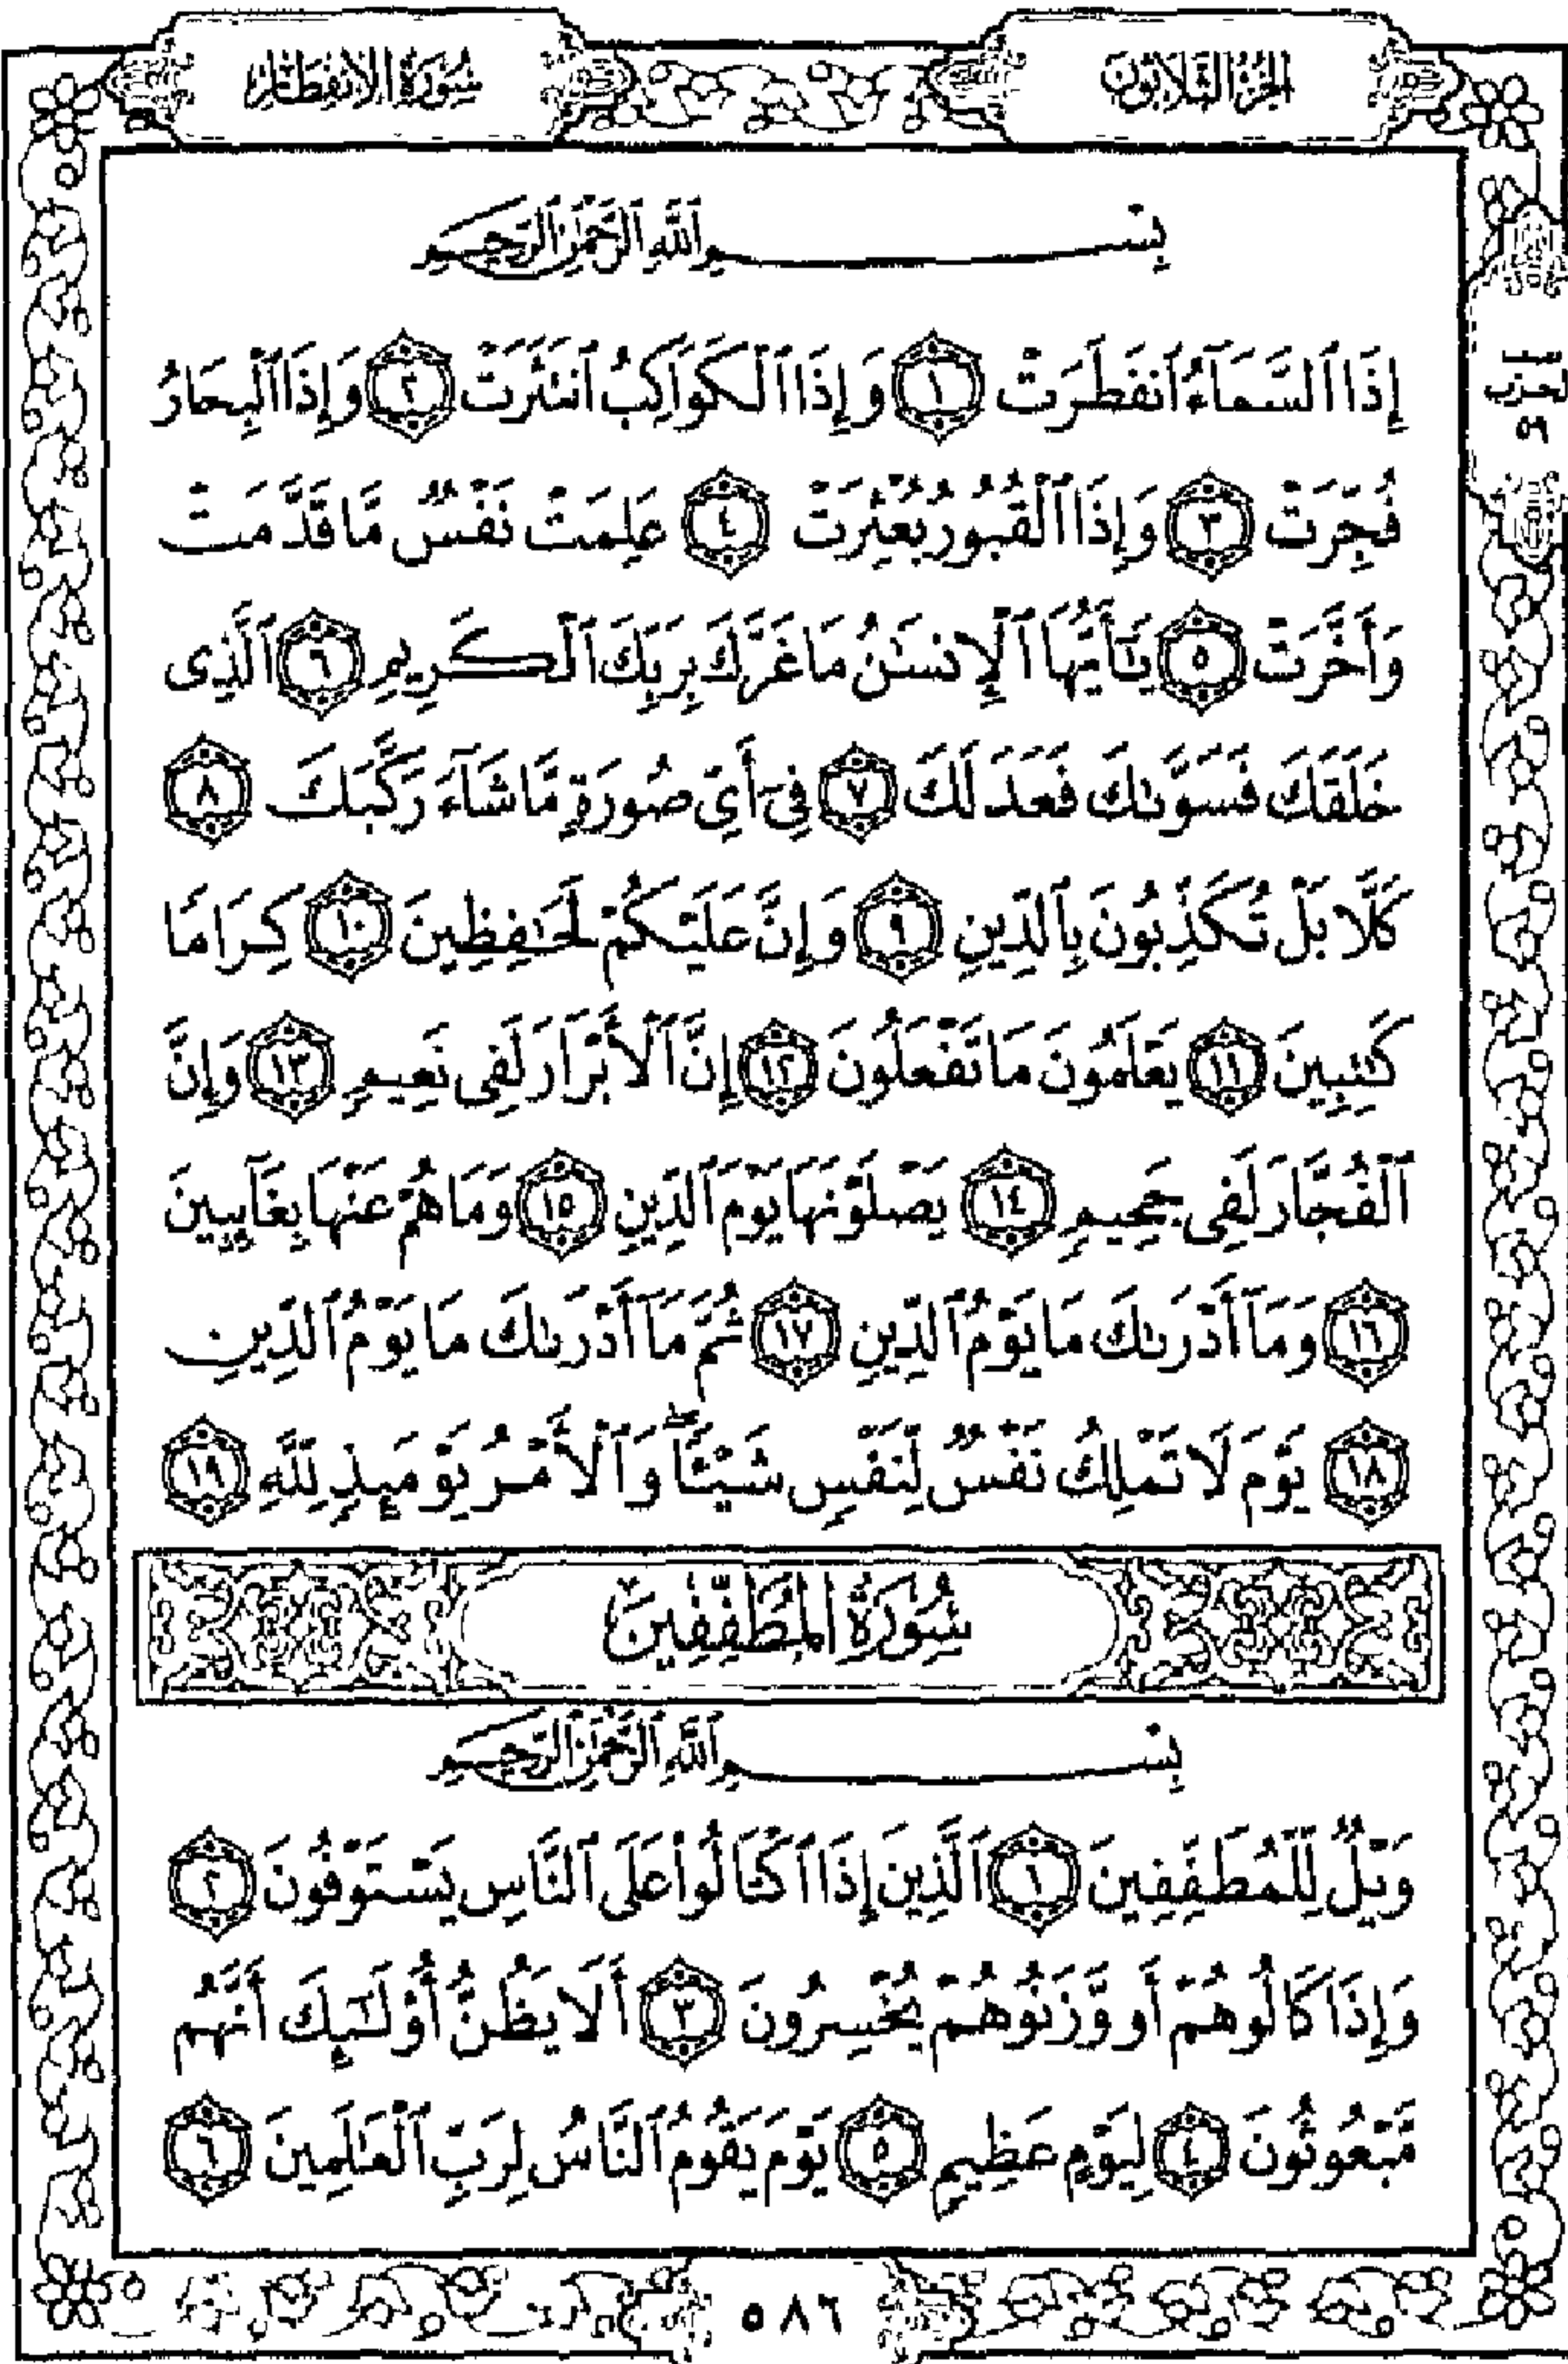 الجزء الثلاثون
سورة الانفطار
بِسْمِ ٱللَّهِ ٱلرَّحْمَٰنِ ٱلرَّحِيمِ
إِذَا ٱلسَّمَآءُ ٱنفَطَرَتْ ١ وَإِذَا ٱلْكَوَاكِبُ ٱنتَثَرَتْ ٢ وَإِذَا ٱلْبِحَارُ
فُجِّرَتْ ٣ وَإِذَا ٱلْقُبُورُ بُعْثِرَتْ ٤ عَلِمَتْ نَفْسٌ مَّا قَدَّمَتْ
وَأَخَّرَتْ ٥ يَٰٓأَيُّهَا ٱلْإِنسَٰنُ مَا غَرَّكَ بِرَبِّكَ ٱلْكَرِيمِ ٦ ٱلَّذِى
خَلَقَكَ فَسَوَّىٰكَ فَعَدَلَكَ ٧ فِىٓ أَىِّ صُورَةٍ مَّا شَآءَ رَكَّبَكَ ٨
كَلَّا بَلْ تُكَذِّبُونَ بِٱلدِّينِ ٩ وَإِنَّ عَلَيْكُمْ لَحَٰفِظِينَ ١٠ كِرَامًا
كَٰتِبِينَ ١١ يَعْلَمُونَ مَا تَفْعَلُونَ ١٢ إِنَّ ٱلْأَبْرَارَ لَفِى نَعِيمٍ ١٣ وَإِنَّ
ٱلْفُجَّارَ لَفِى جَحِيمٍ ١٤ يَصْلَوْنَهَا يَوْمَ ٱلدِّينِ ١٥ وَمَا هُمْ عَنْهَا بِغَآئِبِينَ
١٦ وَمَآ أَدْرَىٰكَ مَا يَوْمُ ٱلدِّينِ ١٧ ثُمَّ مَآ أَدْرَىٰكَ مَا يَوْمُ ٱلدِّينِ
١٨ يَوْمَ لَا تَمْلِكُ نَفْسٌ لِّنَفْسٍ شَيْـًٔا ۖ وَٱلْأَمْرُ يَوْمَئِذٍ لِّلَّهِ ١٩
سُورَةُ المُطَفِّفِين
بِسْمِ ٱللَّهِ ٱلرَّحْمَٰنِ ٱلرَّحِيمِ
وَيْلٌ لِّلْمُطَفِّفِينَ ١ ٱلَّذِينَ إِذَا ٱكْتَالُوا۟ عَلَى ٱلنَّاسِ يَسْتَوْفُونَ ٢
وَإِذَا كَالُوهُمْ أَو وَّزَنُوهُمْ يُخْسِرُونَ ٣ أَلَا يَظُنُّ أُو۟لَٰٓئِكَ أَنَّهُم
مَّبْعُوثُونَ ٤ لِيَوْمٍ عَظِيمٍ ٥ يَوْمَ يَقُومُ ٱلنَّاسُ لِرَبِّ ٱلْعَٰلَمِينَ ٦
٥٨٦